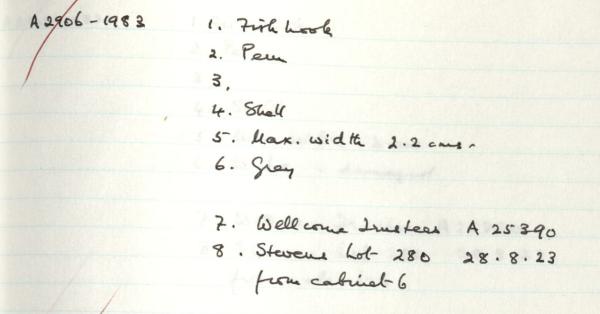 A2906-1983 1. Fish hook
2. Peru
3,
4. Shell
5. Max. width 2.2 cms.
6. Grey
7. Wellcome Trustees A 25390
8. Stevens Lot 280 28.8.23
from cabinet 6